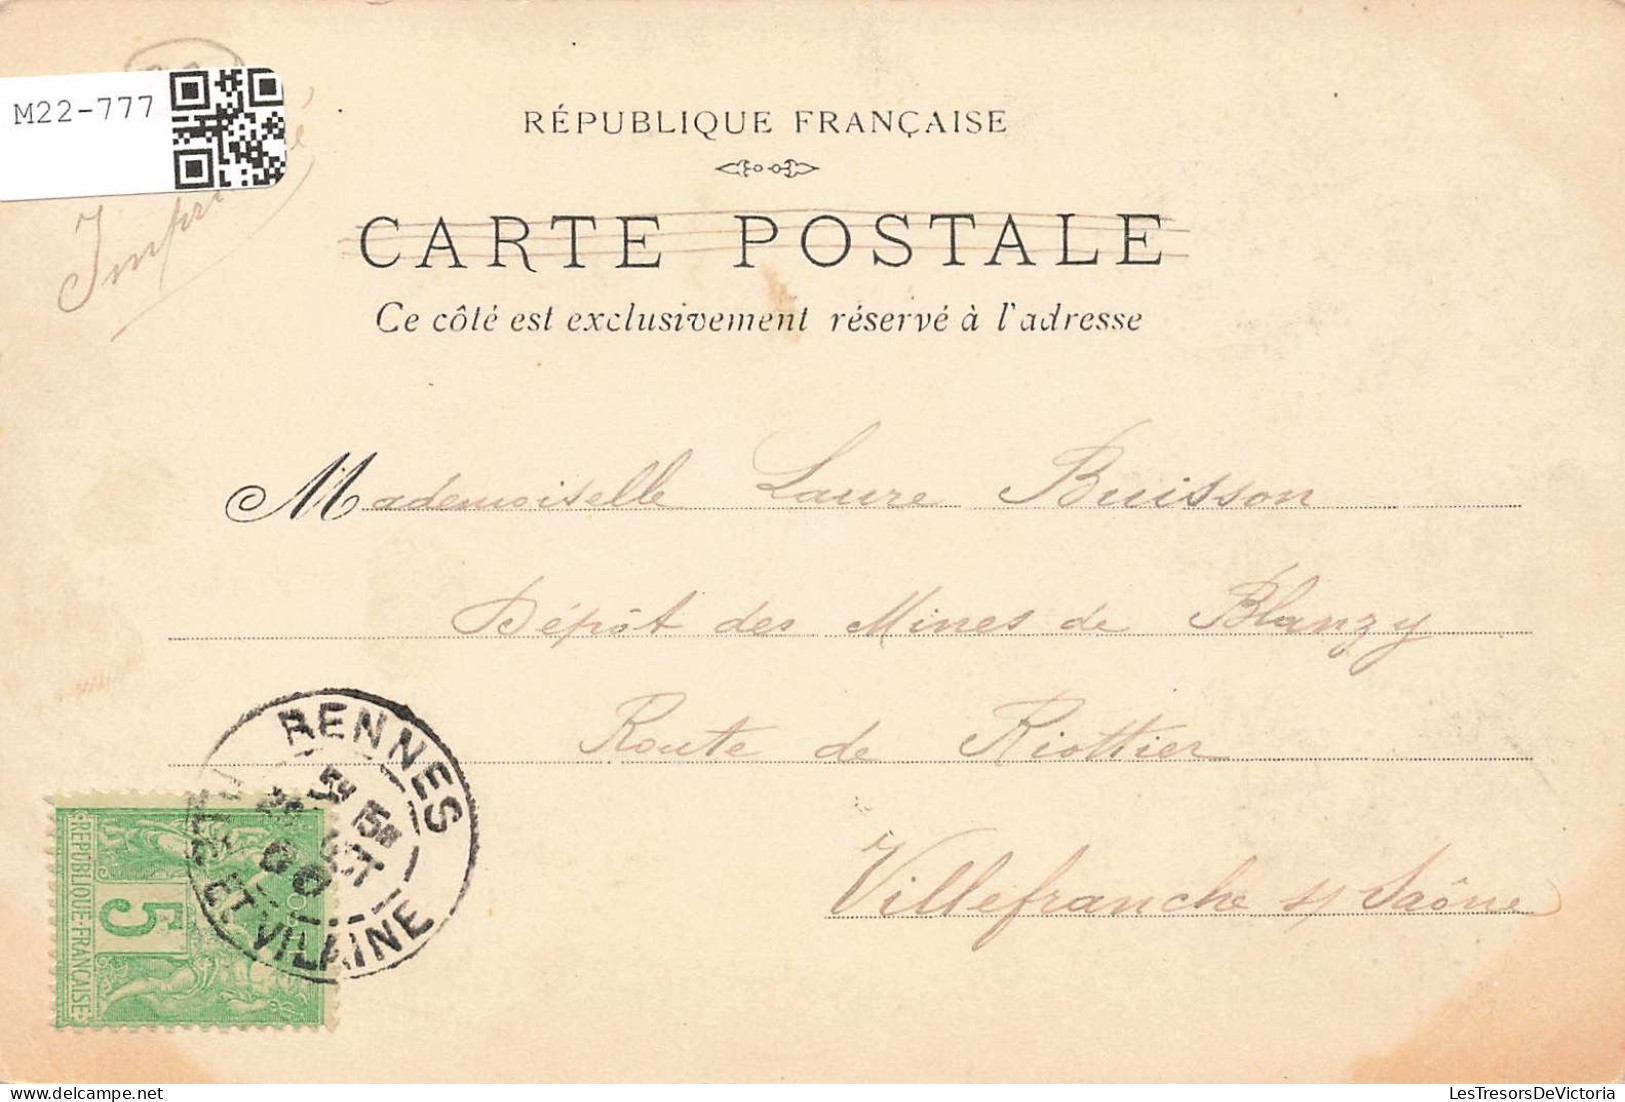 M22-777
Imprimé
RÉPUBLIQUE FRANÇAISE
CARTE POSTALE
Ce côté est exclusivement réservé à l'adresse
Mademoiselle Laure Buisson
Dépôt des Mines de Blanzy
Route de Riottier
Villefranche s/ Saône
RENNES
ET VILAINE
OCT
00
REPUBLIQUE-FRANÇAISE
5
LesTresorsDeVictoria
delcampe.net